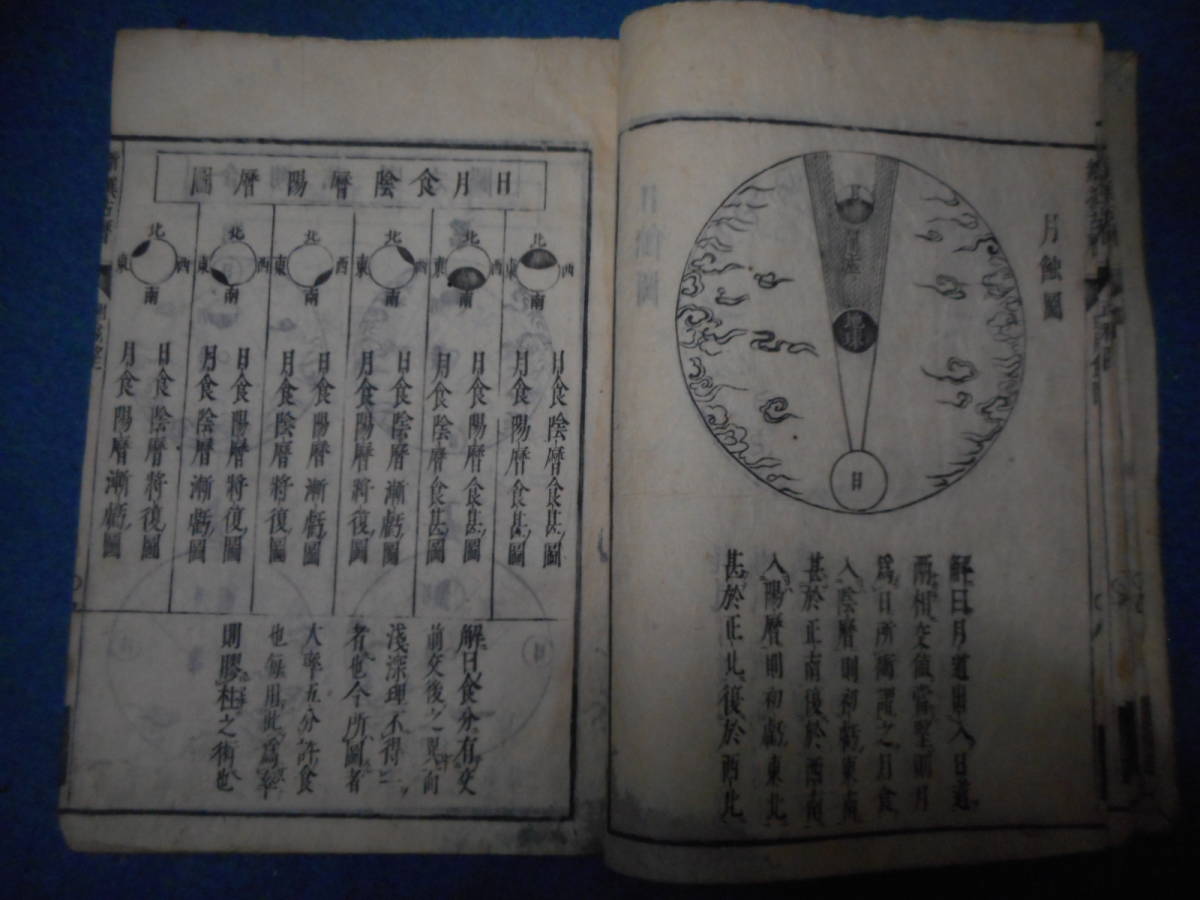 月蝕圖
月
地球
日
解曰月道出入日道
兩相交値當望則月
爲日所衝謂之月食
入陰曆則初虧東南
甚於正南復於西南
入陽曆則初虧東北
甚於正北復於西北
日月食陰曆陽曆圖
北
西
東
南
日食陰曆食甚圖
月食陽曆食甚圖
北
西
東
南
日食陽曆食甚圖
月食陰曆食甚圖
北
西
東
南
日食陰曆漸虧圖
月食陽曆將復圖
北
西
東
南
日食陽曆漸虧圖
月食陰曆將復圖
北
西
東
南
日食陽曆將復圖
月食陰曆漸虧圖
北
西
東
南
日食陰曆將復圖
月食陽曆漸虧圖
解曰食分有交
前交後之異而
淺深理不得一
者也今所圖者
大率五分許食
也每用此爲率
則膠柱之術也